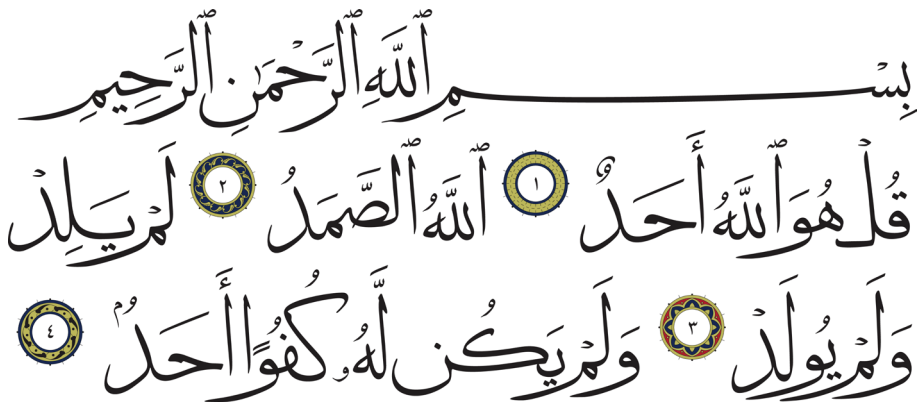 بِسْمِ ٱللَّهِ ٱلرَّحْمَٰنِ ٱلرَّحِيمِ
قُلْ هُوَ ٱللَّهُ أَحَدٌ ١ ٱللَّهُ ٱلصَّمَدُ ٢ لَمْ يَلِدْ
وَلَمْ يُولَدْ ٣ وَلَمْ يَكُن لَّهُۥ كُفُوًا أَحَدُۢ ٤